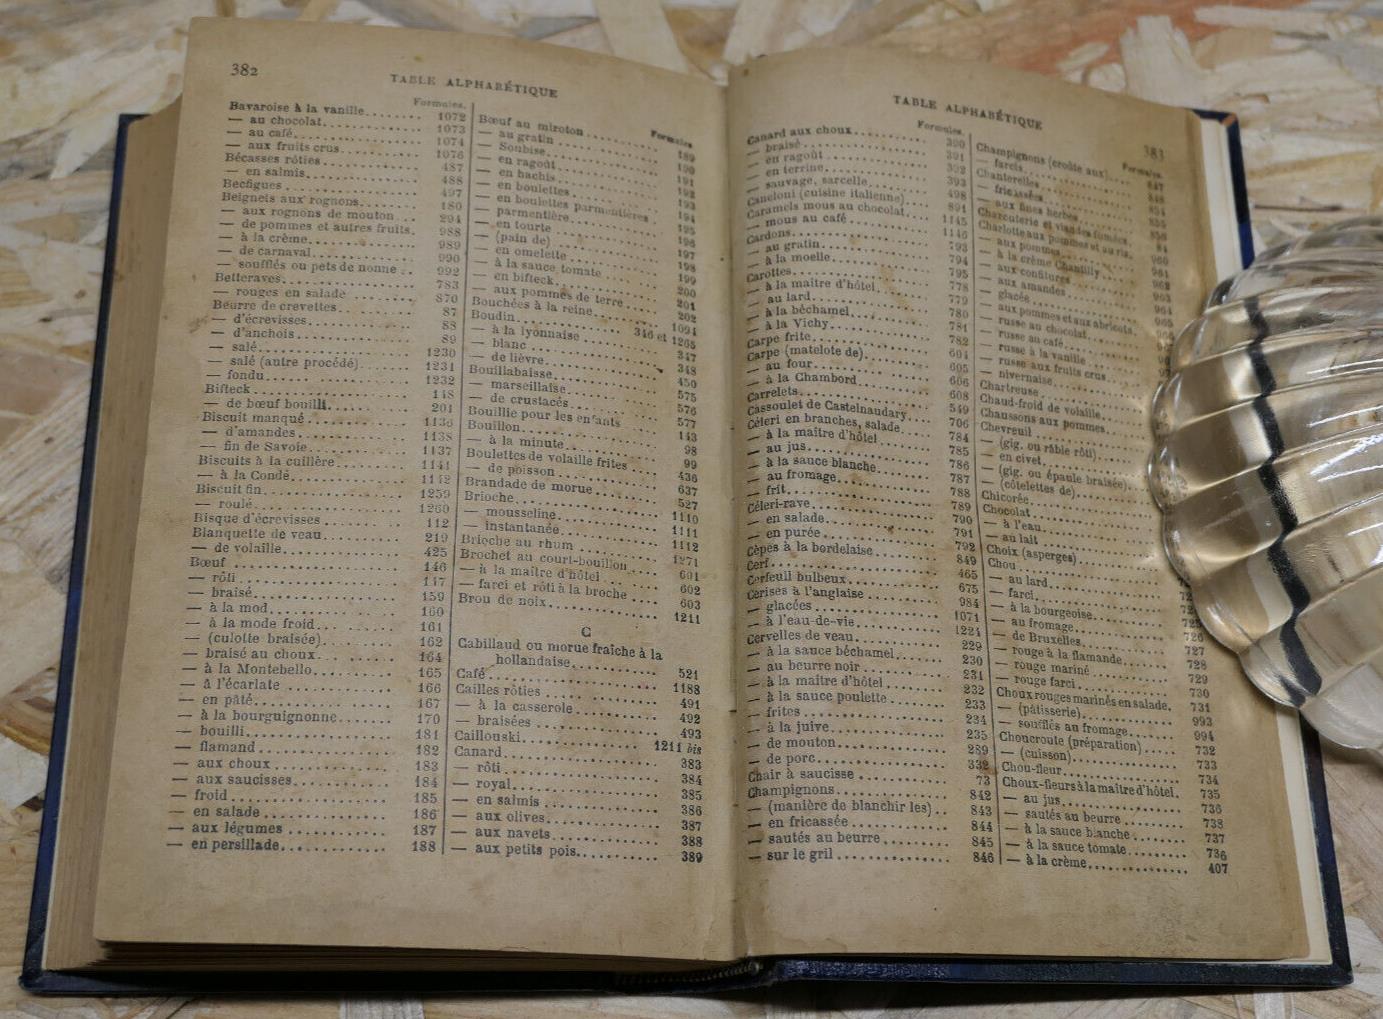 382
TABLE ALPHABÉTIQUE
Formules.
Bavaroise à la vanille........ 1072
— au chocolat........ 1073
— au café........ 1074
— aux fruits crus........ 1076
Bécasses rôties........ 487
— en salmis........ 488
Becfigues........ 497
Beignets aux rognons........ 180
— aux rognons de mouton.. 294
— de pommes et autres fruits. 988
— à la crème........ 989
— de carnaval........ 990
— soufflés ou pets de nonne.. 992
Betteraves........ 783
— rouges en salade........ 870
Beurre de crevettes........ 87
— d'écrevisses........ 88
— d'anchois........ 89
— salé........ 1230
— salé (autre procédé)........ 1231
— fondu........ 1232
Bifteck........ 148
— de bœuf bouilli........ 201
Biscuit manqué........ 1136
— d'amandes........ 1138
— fin de Savoie........ 1137
Biscuits à la cuillère........ 1141
— à la Condé........ 1142
Biscuit fin........ 1259
— roulé........ 1260
Bisque d'écrevisses........ 112
Blanquette de veau........ 219
— de volaille........ 425
Bœuf........ 146
— rôti........ 147
— braisé........ 159
— à la mod........ 160
— à la mode froid........ 161
— (culotte braisée)........ 162
— braisé au choux........ 164
— à la Montebello........ 165
— à l'écarlate........ 166
— en pâté........ 167
— à la bourguignonne........ 170
— bouilli........ 181
— flamand........ 182
— aux choux........ 183
— aux saucisses........ 184
— froid........ 185
— en salade........ 186
— aux légumes........ 187
— en persillade........ 188
Formules
Bœuf au miroton........ 189
— au gratin........ 190
— Soubise........ 191
— en ragoût........ 192
— en hachis........ 193
— en boulettes........ 194
— en boulettes parmentières. 195
— parmentière........ 196
— en tourte........ 197
— (pain de)........ 198
— en omelette........ 199
— à la sauce tomate........ 200
— en bifteck........ 201
— aux pommes de terre........ 202
Bouchées à la reine........ 1094
Boudin........ 346 et 1265
— à la lyonnaise........ 347
— blanc........ 348
— de lièvre........ 450
Bouillabaisse........ 575
— marseillaise........ 576
— de crustacés........ 577
Bouillie pour les enfants........ 143
Bouillon........ 98
— à la minute........ 99
Boulettes de volaille frites........ 436
— de poisson........ 637
Brandade de morue........ 527
Brioche........ 1110
— mousseline........ 1111
— instantanée........ 1112
Brioche au rhum........ 1271
Brochet au court-bouillon........ 601
— à la maître d'hôtel........ 602
— farci et rôti à la broche.... 603
Brou de noix........ 1211
C
Cabillaud ou morue fraîche à la
hollandaise........ 521
Café........ 1188
Cailles rôties........ 491
— à la casserole........ 492
— braisées........ 493
Caillouski........ 1211 bis
Canard........ 383
— rôti........ 384
— royal........ 385
— en salmis........ 386
— aux olives........ 387
— aux navets........ 388
— aux petits pois........ 389
TABLE ALPHABÉTIQUE
383
Formules.
Canard aux choux........ 390
— braisé........ 391
— en ragoût........ 392
— en terrine........ 393
— sauvage, sarcelle........ 498
Caneloni (cuisine italienne).... 891
Caramels mous au chocolat.... 1145
— mous au café........ 1146
Cardons........ 793
— au gratin........ 794
— à la moelle........ 795
Carottes........ 778
— à la maître d'hôtel........ 779
— au lard........ 780
— à la béchamel........ 781
— à la Vichy........ 782
Carpe frite........ 604
Carpe (matelote de)........ 605
— au four........ 606
— à la Chambord........ 608
Carrelets........ 549
Cassoulet de Castelnaudary.... 706
Céleri en branches, salade.... 784
— à la maître d'hôtel........ 785
— au jus........ 786
— à la sauce blanche........ 787
— au fromage........ 788
— frit........ 789
Céleri-rave........ 790
— en salade........ 791
— en purée........ 792
Cèpes à la bordelaise........ 849
Cerf........ 465
Cerfeuil bulbeux........ 675
Cerises à l'anglaise........ 984
— glacées........ 1071
— à l'eau-de-vie........ 1224
Cervelles de veau........ 229
— à la sauce béchamel........ 230
— au beurre noir........ 231
— à la maître d'hôtel........ 232
— à la sauce poulette........ 233
— frites........ 234
— à la juive........ 235
— de mouton........ 289
— de porc........ 332
Chair à saucisse........ 73
Champignons........ 842
— (manière de blanchir les).. 843
— en fricassée........ 844
— sautés au beurre........ 845
— sur le gril........ 846
Formules.
Champignons (croûte aux).... 847
— farcis........ 848
Chanterelles........ 854
— fricassées........ 855
— aux fines herbes........
Charcuterie et viandes fumées. 84
Charlotte aux pommes et au riz. 960
— aux pommes........ 961
— à la crème Chantilly........ 962
— aux confitures........ 963
— aux amandes........ 964
— glacée........ 965
— aux pommes et aux abricots.
— russe au chocolat........
— russe au café........
— russe à la vanille........
— russe aux fruits crus........
— nivernaise........
Chartreuse........
Chaud-froid de volaille........
Chaussons aux pommes........
Chevreuil........
— (gig. ou râble rôti)........
— en civet........
— (gig. ou épaule braisée)....
— (côtelettes de)........
Chicorée........
Chocolat........
— à l'eau........
— au lait........
Choix (asperges)........
Chou........
— au lard........
— farci........
— à la bourgeoise........
— au fromage........ 725
— de Bruxelles........ 726
— rouge à la flamande........ 727
— rouge mariné........ 728
— rouge farci........ 729
Choux rouges marinés en salade. 730
— (pâtisserie)........ 731
— soufflés au fromage........ 993
Choucroute (préparation)..... 994
— (cuisson)........ 732
Chou-fleur........ 733
Choux-fleurs à la maître d'hôtel. 734
— au jus........ 735
— sautés au beurre........ 736
— à la sauce blanche........ 738
— à la sauce tomate........ 737
— à la crème........ 736
407